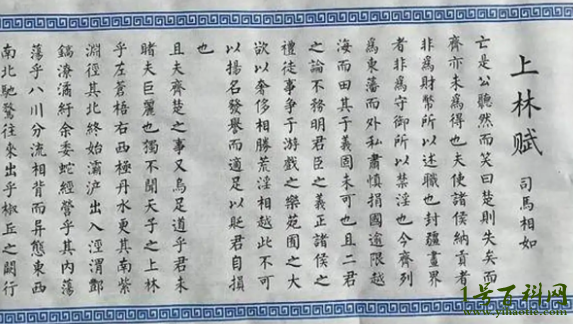 上林赋
司馬相如
亡是公聽然而笑曰楚則失矣而
齊亦未爲得也夫使諸侯納貢者
非爲財幣所以述職也封疆畫界
者非爲守御所以禁淫也今齊列
爲東藩而外私肅慎捐國逾限越
海而田其于義固未可也且二君
之論不務明君臣之義正諸侯之
禮徒事爭于游戲之樂苑囿之大
欲以奢侈相勝荒淫相越此不可
以揚名發譽而適足以貶君自損
也
且夫齊楚之事又烏足道乎君未
睹夫巨麗也獨不聞天子之上林
乎左蒼梧右西極丹水更其南紫
淵徑其北終始灞沪出入涇渭酆
鎬潦潏紆余委蛇經營乎其內蕩
蕩乎八川分流相背而异態東西
南北馳騖往來出乎椒丘之闕行
百科网